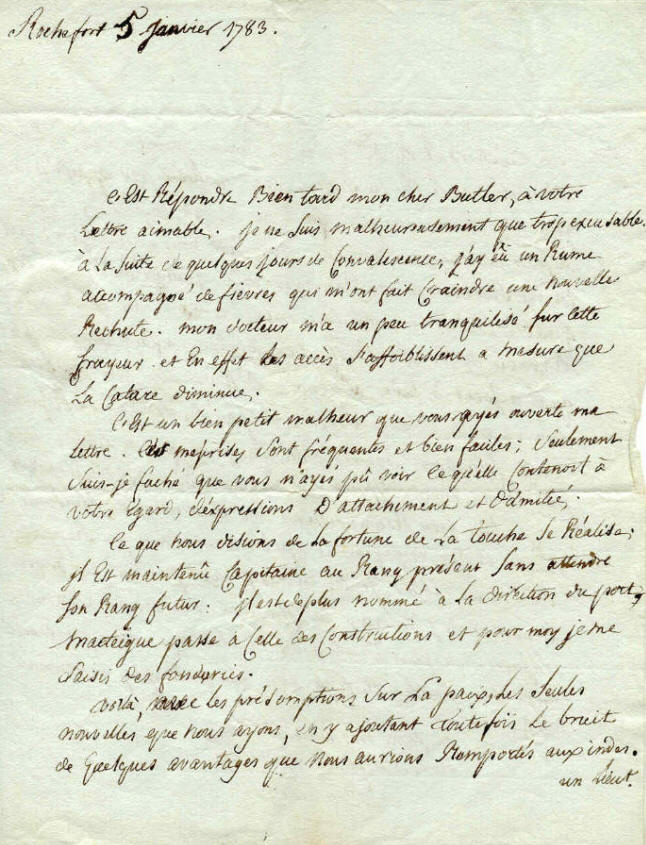 Rochefort 5 Janvier 1783.
C'Est Répondre Bien tard mon cher Butler, à votre
Lettre aimable. je ne suis malheureusement que trop excusable.
à La suite de quelques jours de Convalescence, j'ay eû un Rume
accompagné de fievres qui m'ont fait Craindre une nouvelle
Rechute. mon docteur m'a un peu tranquilisé sur cette
frayeur. et En effet les accès s'affoiblissent a mesure que
La Catare diminue.
C'Est un bien petit malheur que vous ayés ouverte ma
lettre. les méprises sont fréquentes et bien faciles; seulement
suis-je faché que vous n'ayés pû voir ce qu'elle Contenoit à
votre Egard, d'expressions D'attachement et d'amitié.
Ce que nous disions de La fortune de La Touche se Réalise;
il Est maintenû Capitaine au Rang présent sans attendre
son Rang futur: il est de plus nommé à La direction du port,
passe à Celle des Constructions et pour moy je me
saisis des fonderies.
Voilà, avec les présomptions sur La paix, les seules
nouvelles que nous ayons, en y ajoutant toutefois Le bruit
de quelques avantages que nous aurions Remportés aux indes.
un Lieut.